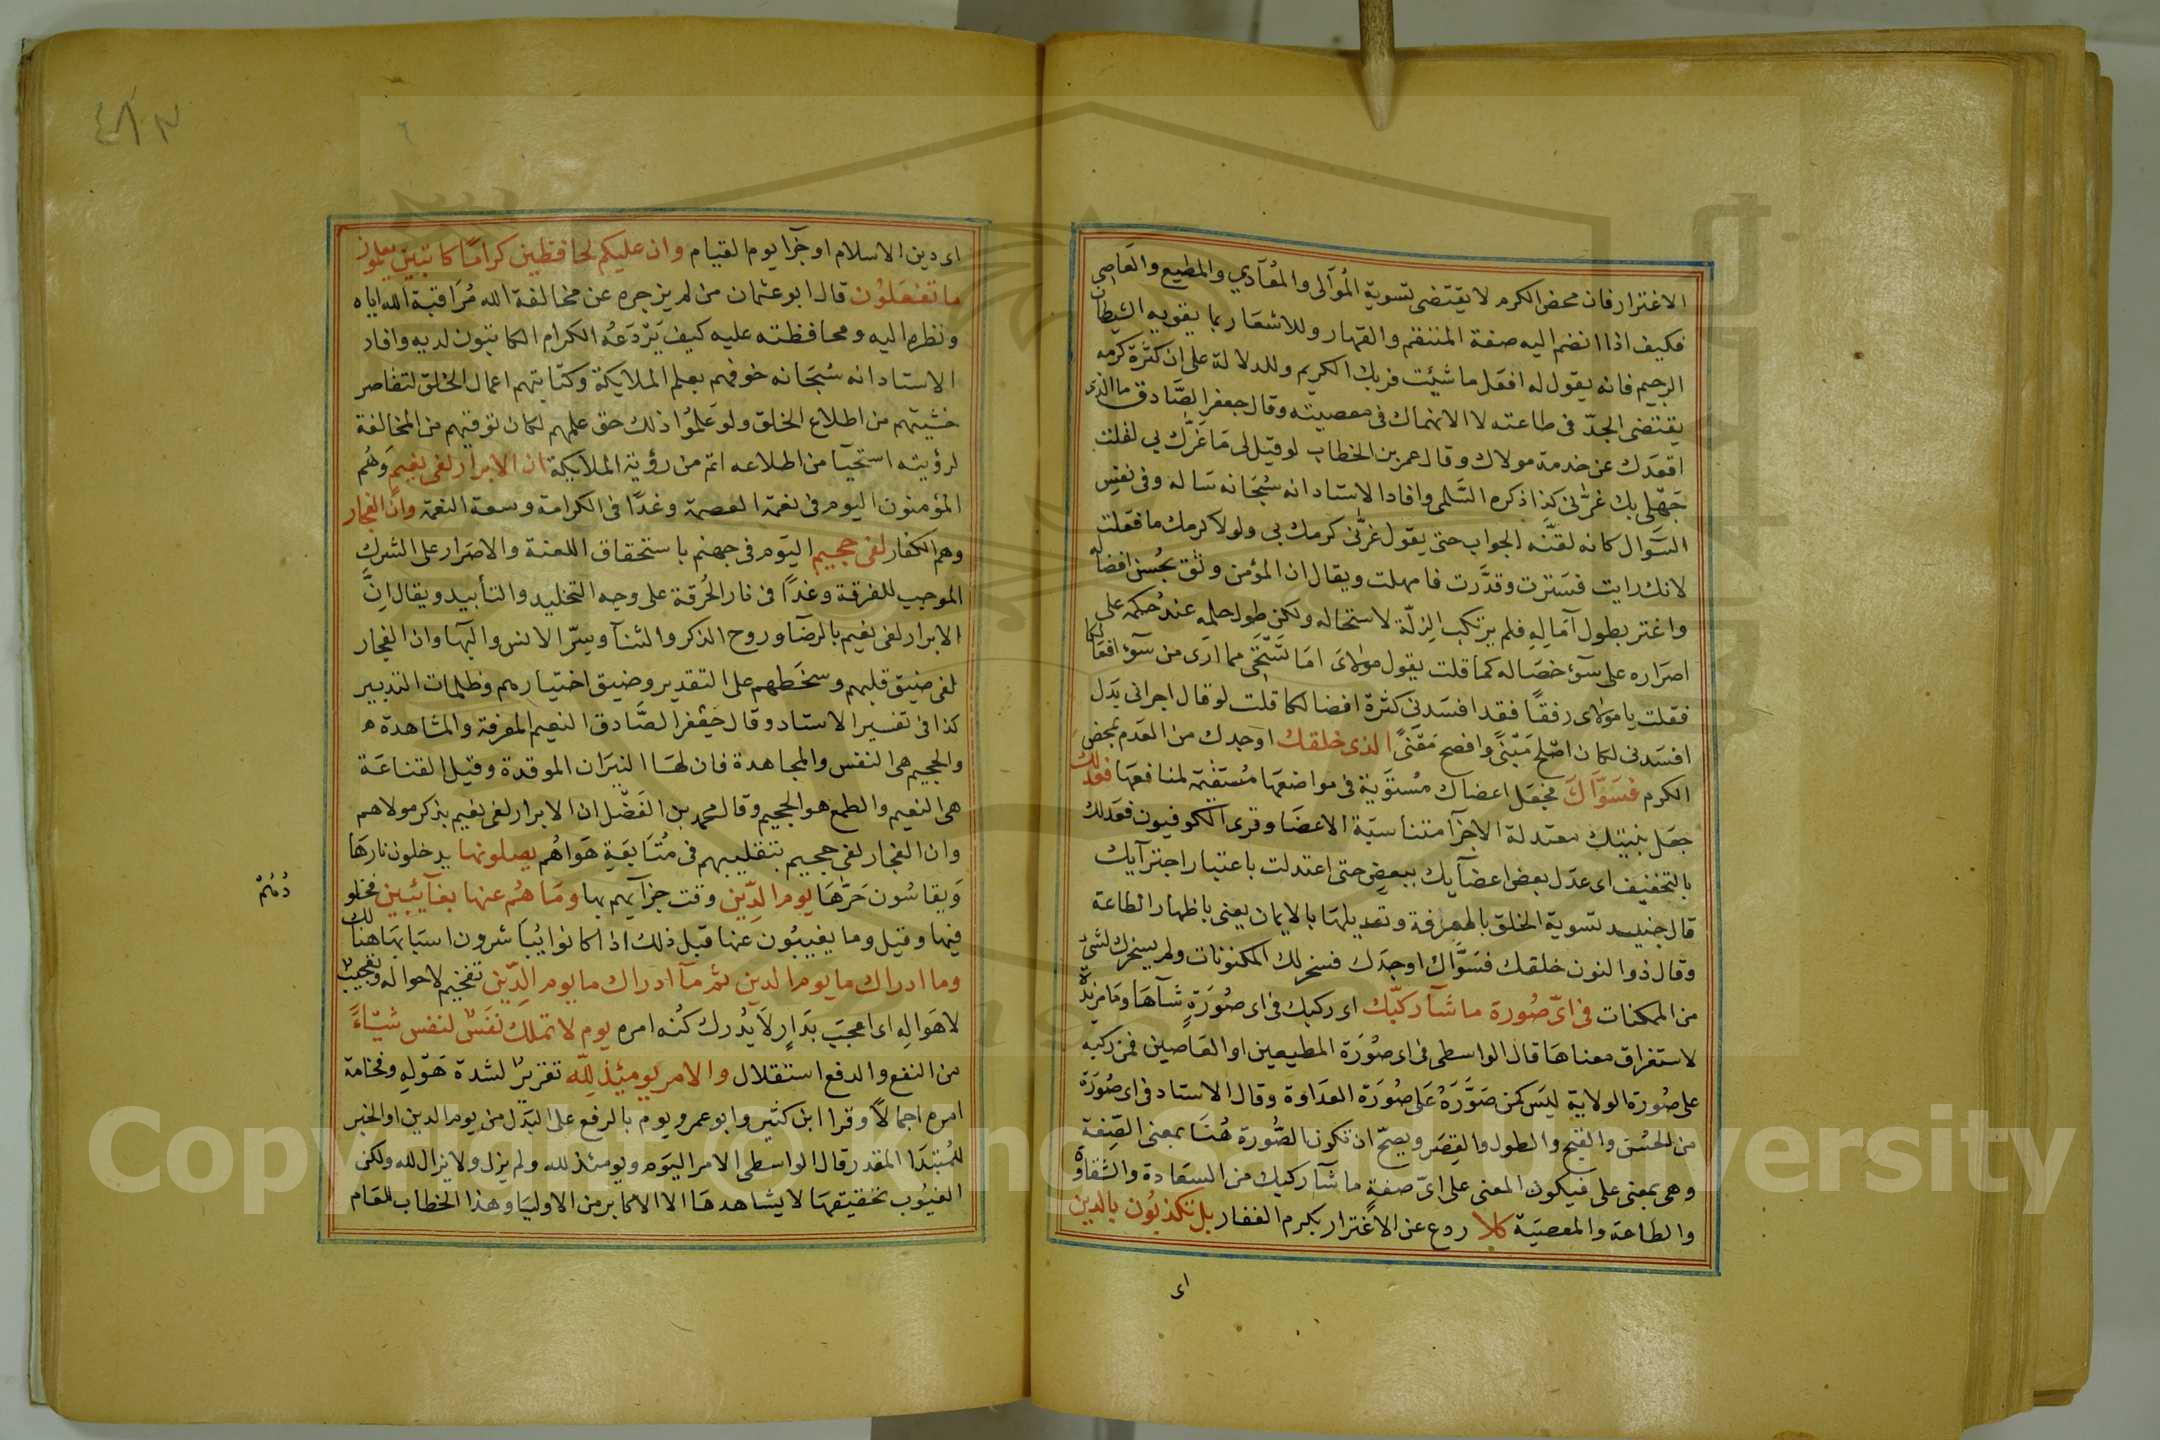 الاغترار فان محض الكرم لا يقتضى تسوية المُوَآلى والمُعَآدي والمطيع والعَاصى
فكيف اذا انضم اليه صفة المنتقم والقهار وللاشعار بما يقويه الشيطان
الرجيم فانه يقول له افعَل ما شئت فربك الكريم وللدلالة على ان كثرة كرمه
يقتضى الجدّ فى طاعته لا الانهماك فى معصيته وقال جعفر الصَّادق ما الذى
اقعَدك عن خدمة مولاك وقال عمر بن الخطاب لو قيل لى مَا غَرَّك بي لقلت
جَهْلى بك غرّنى كذا ذكره السَّلمى وافاد الاستاد انه سُبحَانه سَاله وفى نفسِ
السَّوال كانه لقنَّه الجواب حتى يقول غرَّنى كرمك بى ولولا كرمك ما فعَلت
لانك رايت فسَترت وقدَّرت فامهلت ويقال ان المؤمن وثق بحُسن افضاله
واغتر بطول آمَالِهِ فلم يرتكب الزلّة لاستحاله ولكن طول حلمه عنهُ حكمه على
اصرَاره على سَوٓء خصَاله كما قلت يقول مولاىَ امَا تَسْتَحَى مما ارَى من سَوٓء افعَالكا
فقلت يا مولاى رفقًا فقد افسَدنى كثرة افضالكا قلت لو قال اجرانى بَدل
افسَدنى لكان اصْلح مَبْنىً وافصح مَعْنىً الذى خلقك اوجدك من العَدم بمحضِ
الكرم فسَوَّآكَ فجعَل اعضآك مُستَوَية فى مواضعهَا مُستقيمَة لمنافعهَا فعَدلك
جعَل بنيتك معتدلة الاجزآ متناسبَة الاعضَا وقرى الكوفيون فعَدلك
بالتخفيف اى عدَل بعض اعضآيك ببعضِ حتى اعتدلت باعتبار اجترآيك
قال جنيد تسوية الخلق بالمعرفة وتعديلهَا بالايمان يعنى باظهار الطاعة
وقال ذو النون خلقك فسَوَّاك اوجدَك فسخر لك المكنونات ولم يسخرك لشئ
من الممكنات فى اىّ صُورة ما شآ ركبّك اى ركبك فى اى صُورَةٍ شَآهَا ومَا مزيدة
لاستغراق معناهَا قال الواسطى فى اى صُوَرَة المطيعين او العَاصين فمن ركبَه
على صُورة الولاية ليَس كمن صَوَّرَهُ عَلى صُورَة العدَاوة وقال الاستاد فى اى صُورَة
من الحُسْن والقبح والطول والقِصَر ويصحّ ان تكون الصُّورة هُنَا بمعنى الصِّفة
وهى بمعنى على فيكون المعنى على اىّ صفةٍ ما شآ ركبك من السعَادة والشقاوة
والطاعة والمعصيَة كلا ردع عن الاغترار بكرم الغفار بل تكذبُون بالدين
اى
اى دين الاسلام او جزآ يوم القيام وان عليكم لحافظين كرامًا كاتبين يعلمون
ما تفعَلوُن قال ابو عثمان من لم يزجره عن مخالفة الله مُرَاقبة الله اياه
ونظره اليه ومحافظته عليه كيف يَرْدَعَهُ الكرام الكاتبون لديه وافاد
الاستاد انه سُبحَانه خوفهم بعلم الملايكة وكتَابتهم اعمال الخلق لتقاصر
خشيتهم من اطلاع الخلق ولو عَلموُا ذلك حق علمهم لكان توقيهم من المخالفة
لرؤيته استحيآ من اطلاعه اتم من رؤية الملايكة ان الابرار لفى نعيم وَهُم
المؤمنون اليوم فى نعمة العصمة وغدًا فى الكرامة وسعة النعمة وان الفجار
وهم الكفار لفى جحيم اليَوم فى جهنم باستحقاق اللعنة والاصَرار على الشرك
الموجب للفرقة وغدًا فى نار الحُرقة على وجه التخليد والتأبيد ويقال انَّ
الابرار لفى نعيم بالرضآ وروح الذكر والثنآ وبسرّ الانس والبهآ وان الفجار
لفى ضيق قلبهم وسخَطهم على التقدير وضيق اختيارهم وظلمات التدبير
كذا فى تفسير الاستاد وقال جعفر الصَّادق النعيم المعرفة والمشاهدة ه
والجحيم هى النفس والمجاهدة فان لهَا النيرَان الموقدة وقيل القناعَة
هى النعيم والطمع هو الجحيم وقال محمد بن الفَضْل ان الابرار لفى نعيم بذكر مولاهم
وان الفجار لفى جحيم بتقليبهم فى مُتَابعَةِ هَواهُم يصلونها يدخلون نارهَا
وَيقاسُون حَرّهَا يوم الدِّين وقت جزآيهم بها ومَا هُم عنها بغآئبين فخلو
دُهُم
فيها وقيل وما يغيبُون عنها قبل ذلك اذا كانوا يُبَاشرون اسبَابهَا هنالك
وما ادراك ما يوم الدين ثم مآ ادراك ما يوم الدِّين تفخيم لاحواله وتعجيب
لاهَوالِهِ اى اعجبَ بدَارٍ لَا يُدرك كُنه امره يوم لا تملك نَفسٌ لنفس شَيْـًٔا
من النفع والدفع استقلال والامر يومئذ لِلّه تقرير لشدة هَوْله وفخامة
امره اجمالًا وقرا ابن كثير وابو عمرو يوم بالرفع على البَدل من يوم الدين او الخبر
للمُبتَدَا المقدر قال الواسطى الامر اليَوم ويومئذ لله ولم يزل ولا يزال لله ولكن
الغيُوب بحقيقتهَا لا يشاهدهَا الا الاكابر من الاوليَا وهذا الخطاب للعَام
Copyright © King Saud University